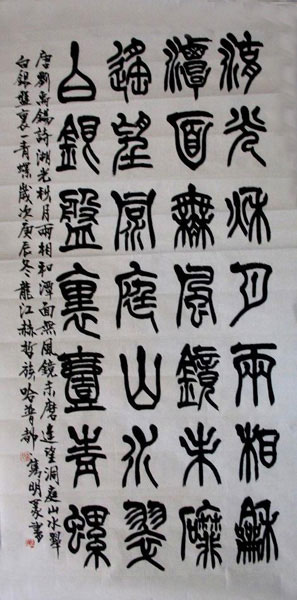 湖光秋月兩相龢
潭面無風鏡未磨
遙望洞庭山水翠
白銀盤裏壹青螺
唐劉禹錫詩湖光秋月兩相和潭面無風鏡未磨遙望洞庭山水翠
白銀盤裏一青螺歲次庚辰冬龍江赫哲族哈普都雋明篆書